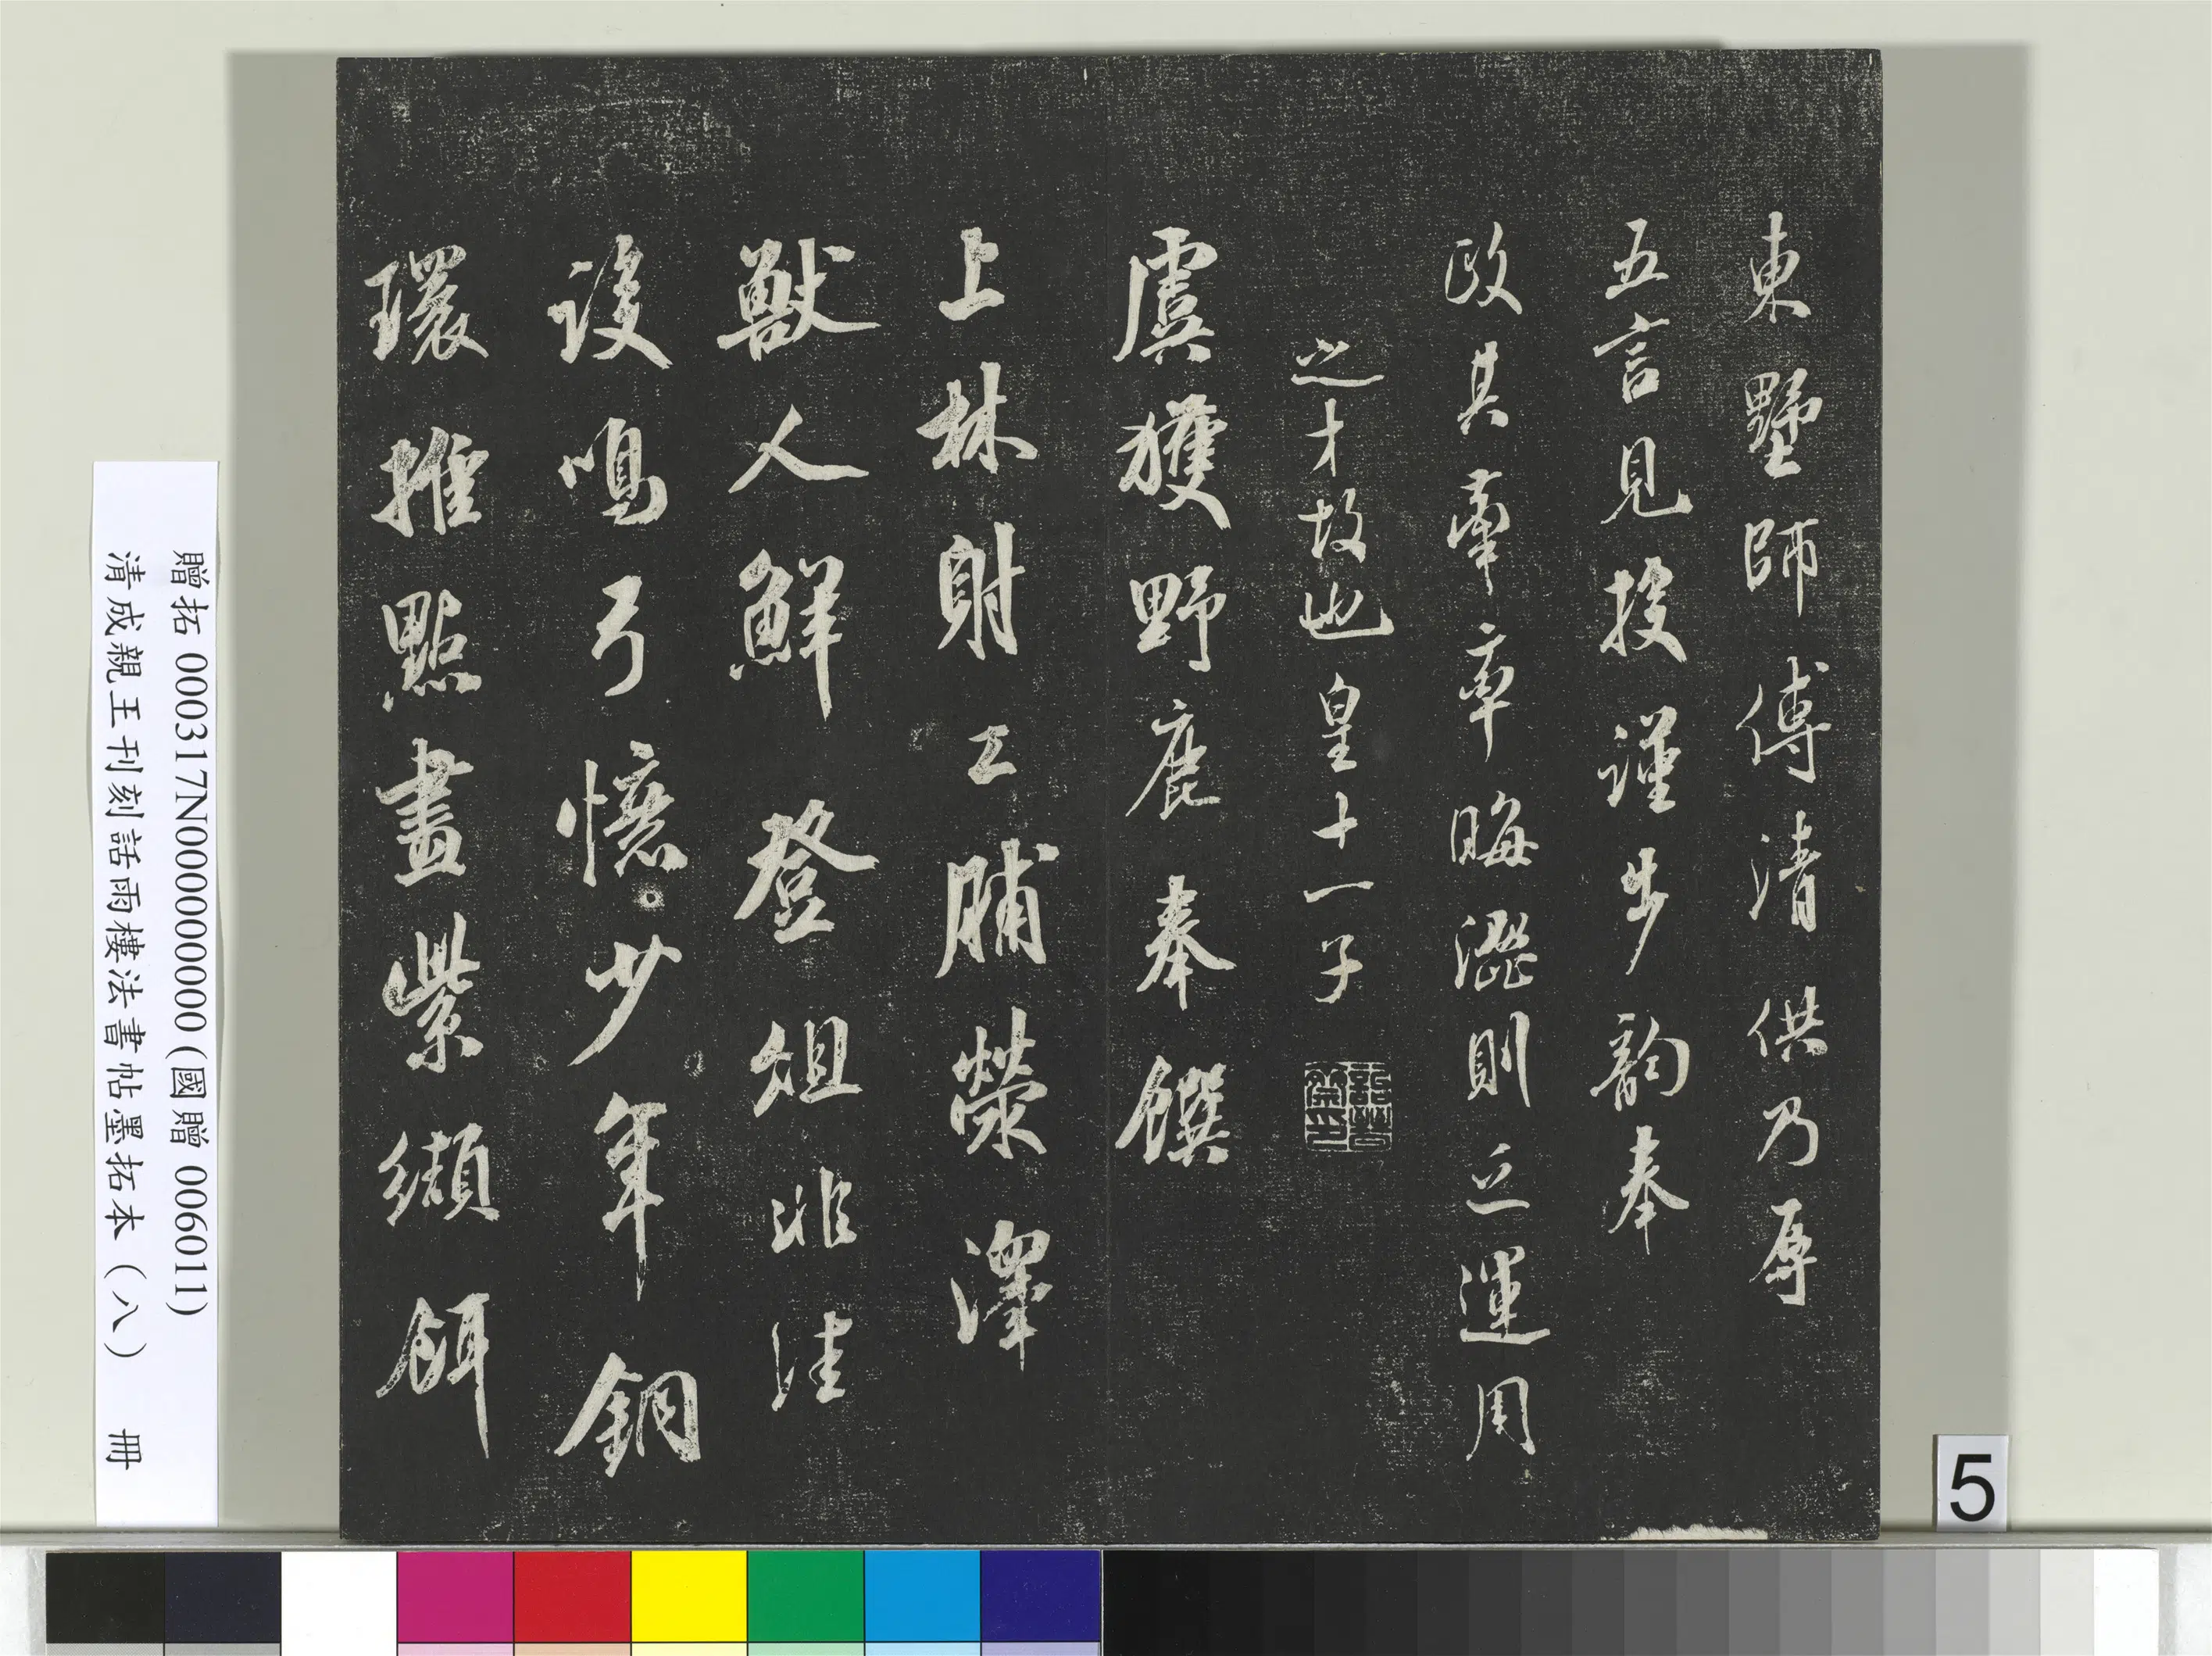 東墅師傅清供乃辱
五言見投謹步韵奉
政其牽率晦澀則乏運用
之才故也皇十一子
詒晉齋印
虞獲野鹿奉饌
上林射工脯滎澤
獸人鮮登俎非
設鳴弓憶少年銅
環推點畫紫纈餌
贈拓 000317N000000000 (國贈 006011)
清成親王刊刻話雨樓法書帖墨拓本（八） 冊
5